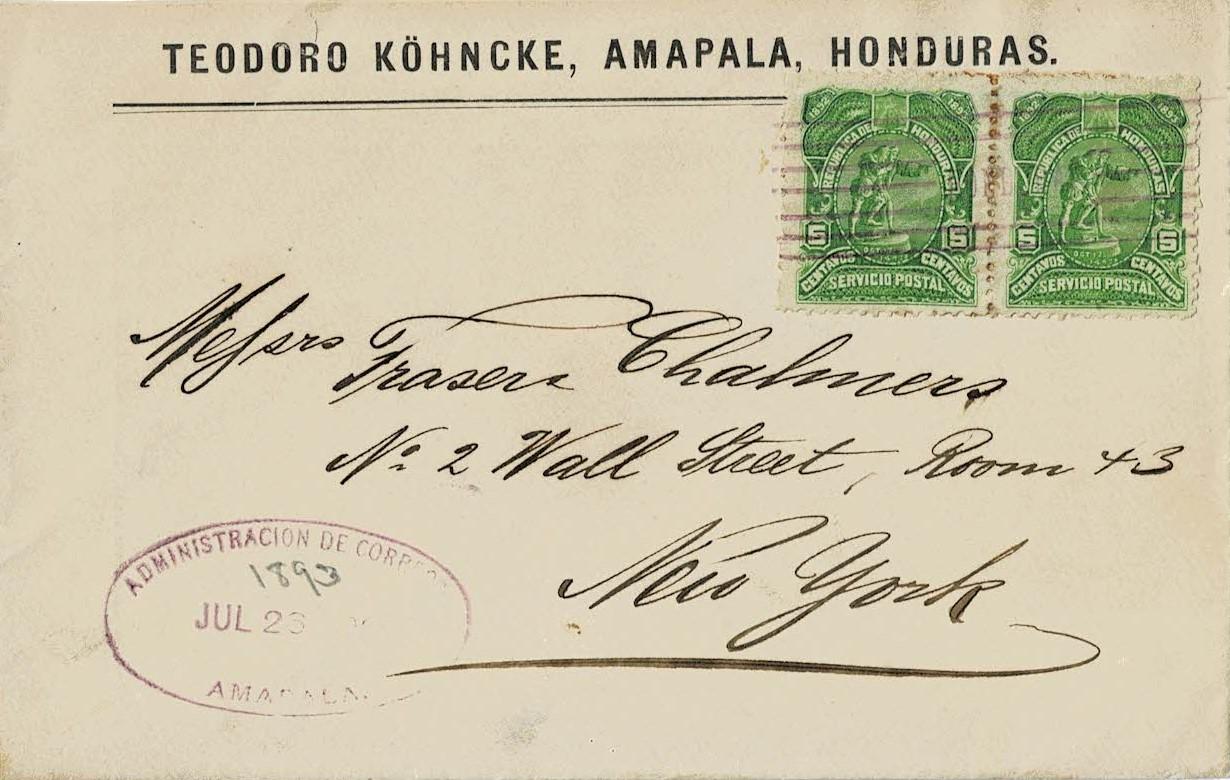 TEODORO KÖHNCKE, AMAPALA, HONDURAS.
1892 1892
REPUBLICA DE HONDURAS
5 5
CENTAVOS CENTAVOS
SERVICIO POSTAL
1892 1892
REPUBLICA DE HONDURAS
5 5
CENTAVOS CENTAVOS
SERVICIO POSTAL
Messrs Fraser & Chalmers
No. 2 Wall Street, Room 43
New York
ADMINISTRACION DE CORREOS
1893
JUL 23
AMAPALA.